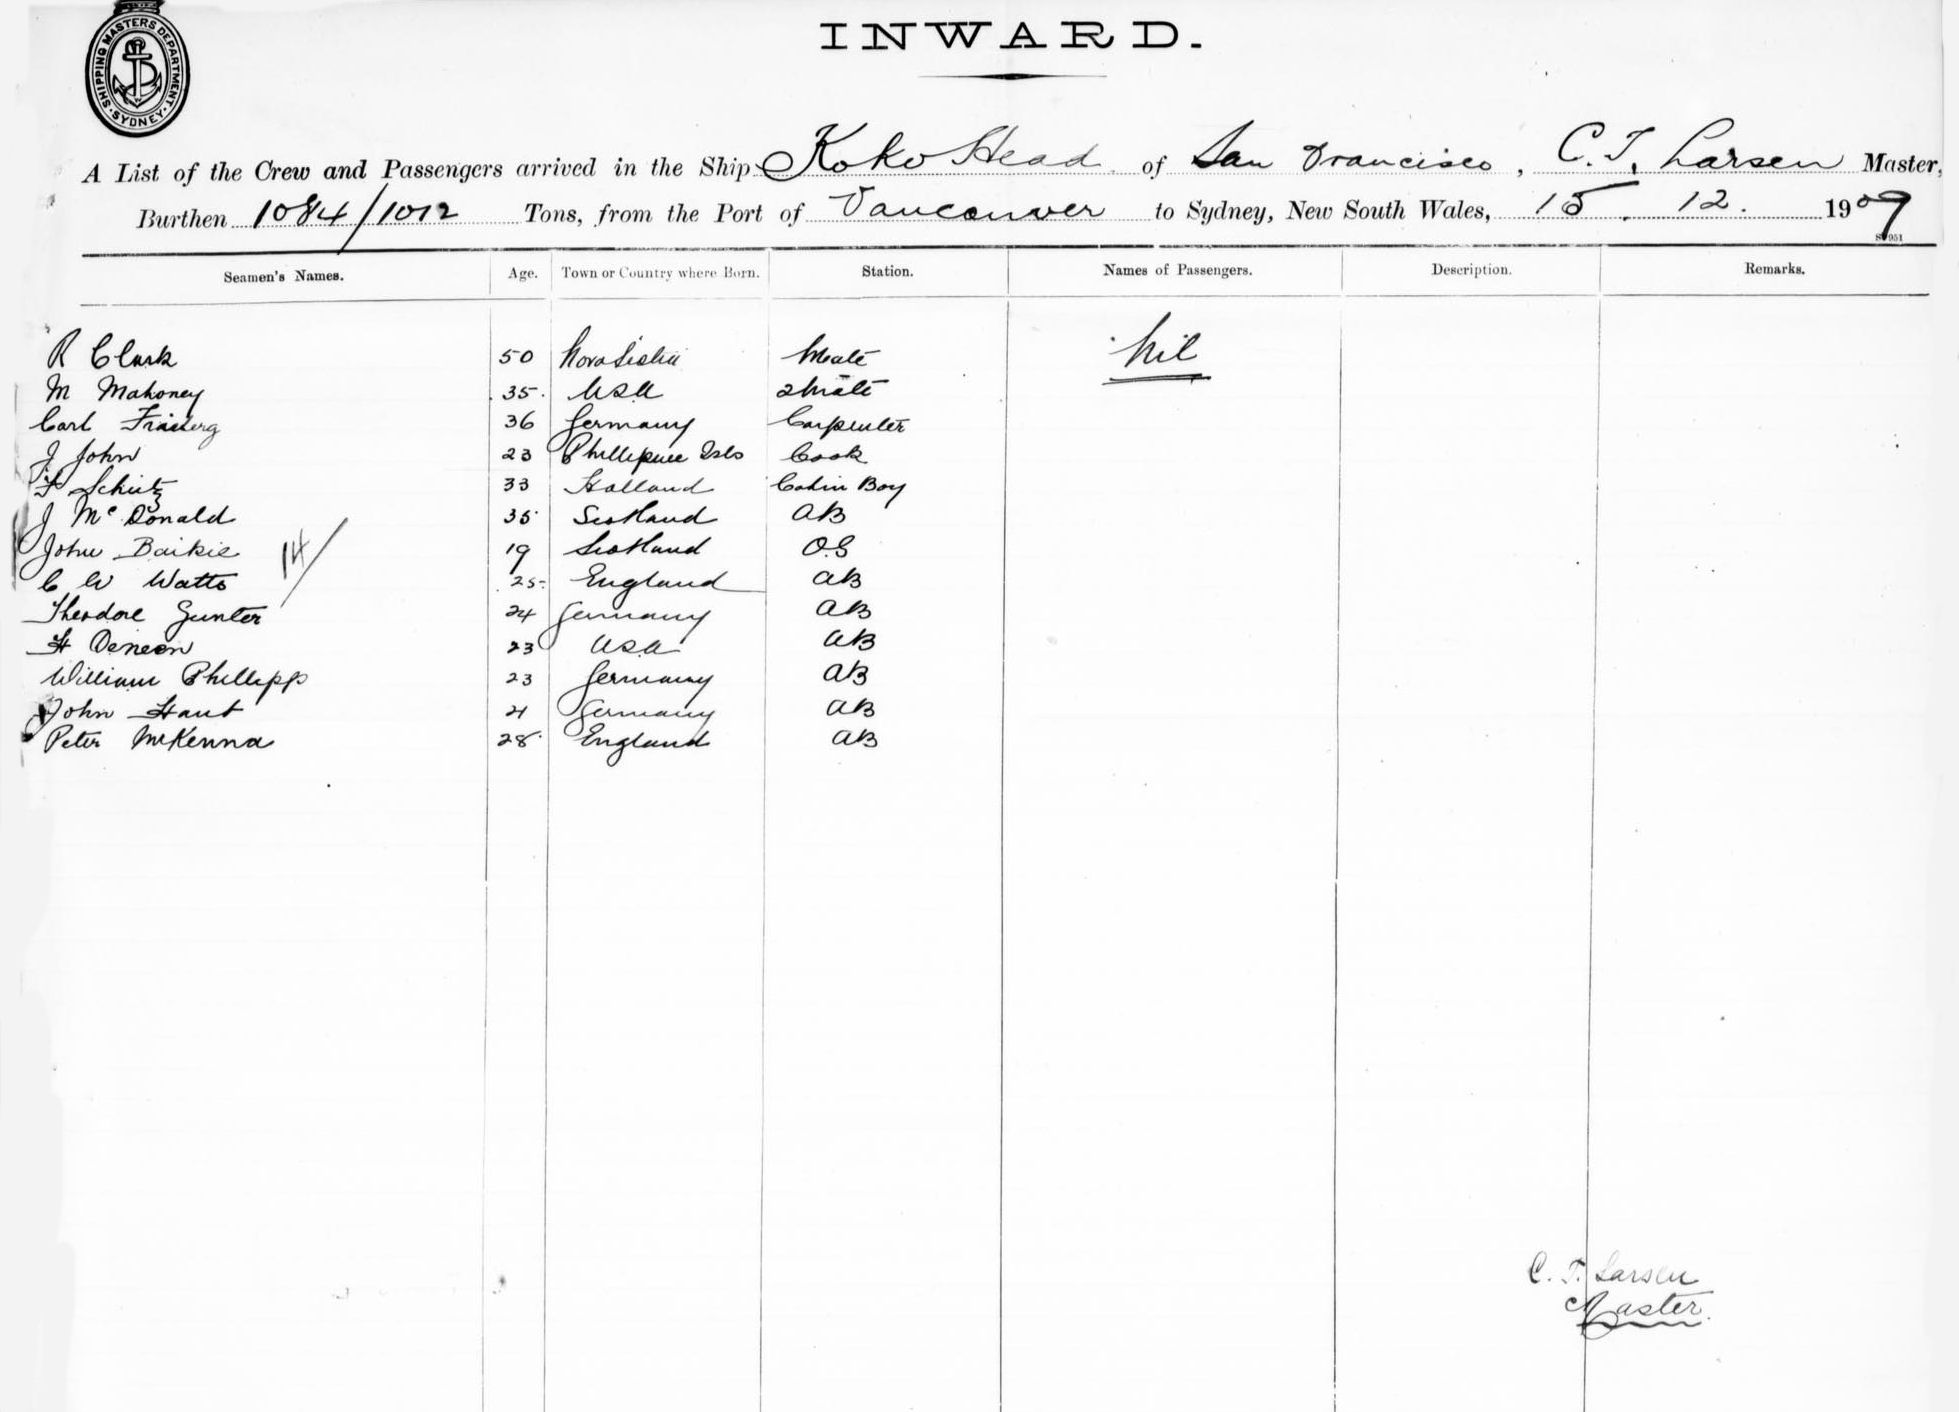 SHIPPING MASTERS DEPARTMENT · SYDNEY ·
INWARD.
A List of the Crew and Passengers arrived in the Ship Koko Head of San Francisco, C. T. Larsen Master,
Burthen 1084/1012 Tons, from the Port of Vancouver to Sydney, New South Wales, 15. 12. 1909
Seamen's Names. Age. Town or Country where Born. Station. Names of Passengers. Description. Remarks.
R Clark 50 Nova Scotia Mate Nil
M Mahoney 35 USA 2 Mate
Carl 36 Germany Carpenter
J John 23 Phillipine Isls Cook
F Schutz 33 Holland Cabin Boy
J McDonald 35 Scotland AB
John Baikie 19 Scotland O.S
14/
C W Watts 25 England AB
Theodore Gunter 24 Germany AB
H Deneen 23 USA AB
William Phillipp 23 Germany AB
John Haut 21 Germany AB
Peter McKenna 28 England AB
C. T. Larsen
Master.